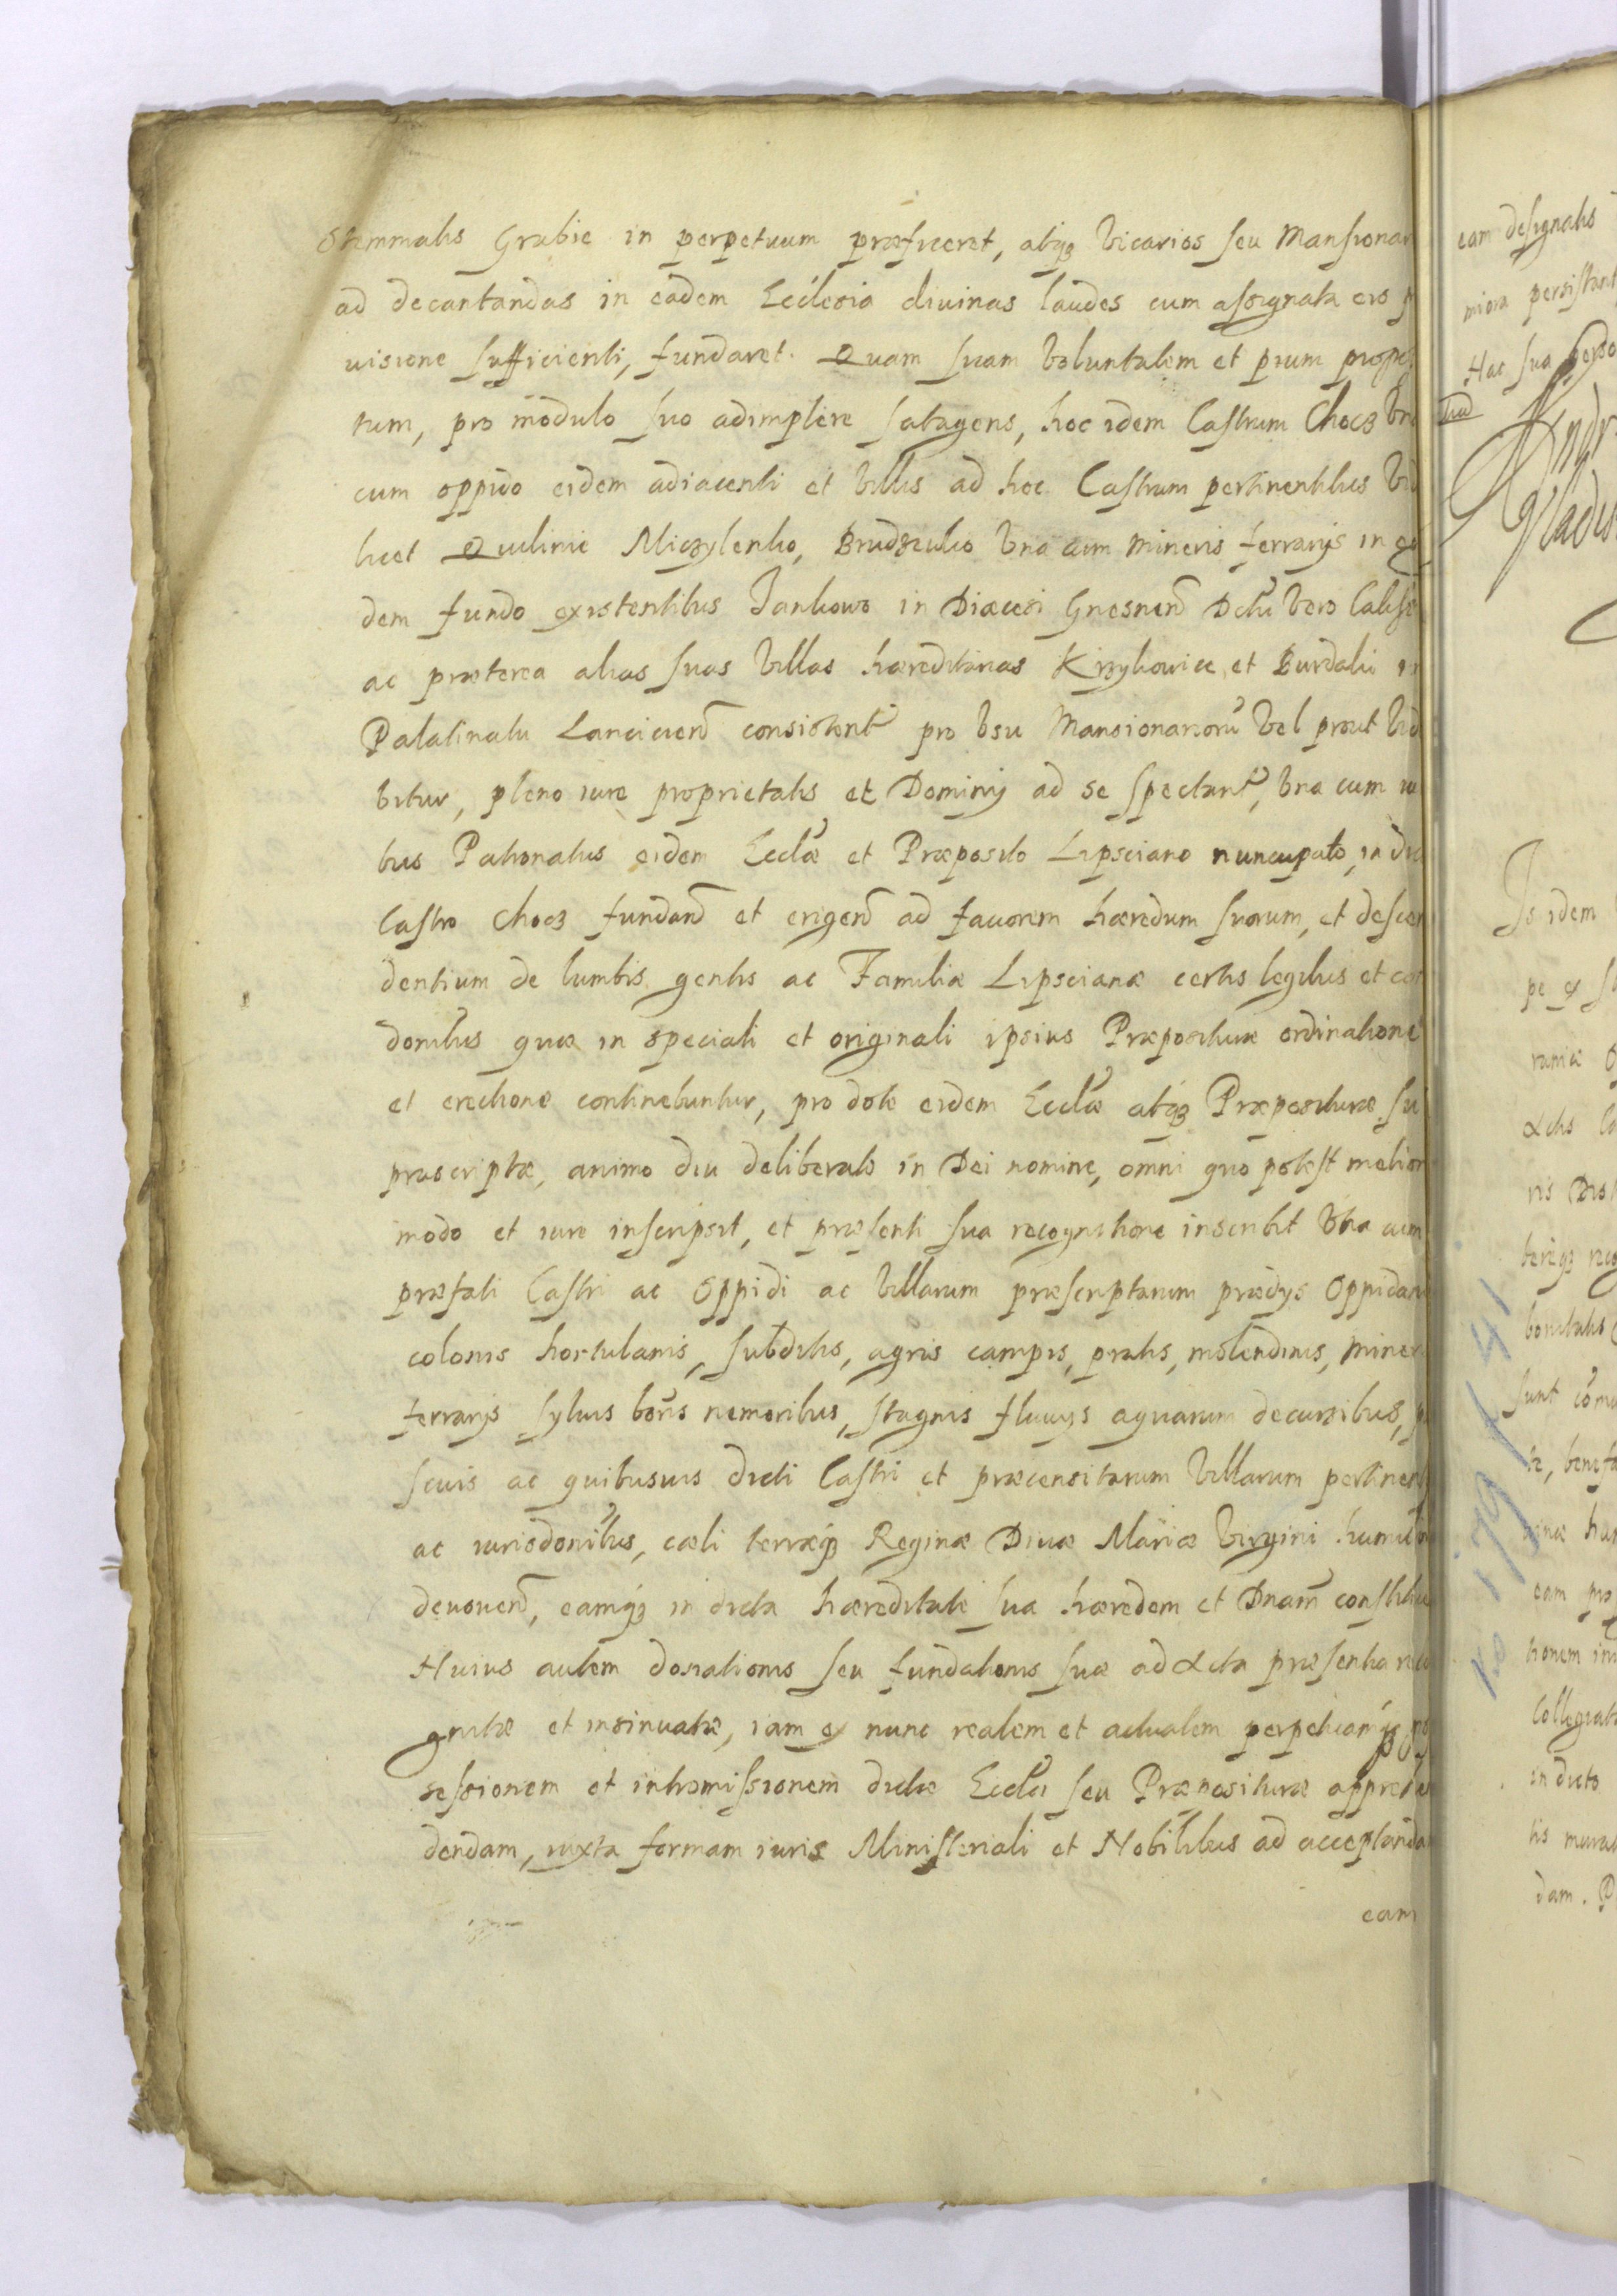 Stemmatis Grabie in perpetuum præficeret, atqꝫ Vicarios seu Mansionar
ad decantandas in eadem Ecclesia diuinas laudes cum assignata eis
uisione sufficienti, fundaret. Quam suam Voluntatem et pium propos
tum, pro modulo suo adimplere satagens, hoc idem Castrum Chocz Vna
cum oppido eidem adiacenti et Villis ad hoc Castrum pertinentibus Vid
licet Quilinie Miczylenko, Brudzewko Vna cum Mineris ferrarijs in eo
dem fundo existentibus Jankowo in Diæcesi Gnesnen Dctu Vero Calisie
ac præterea alias suas Villas hæreditarias Krzykowice, et Burdaki in
Palatinatu Lancicien consistent pro Vsu Mansionarioru Vel prout Vid
bitur, pleno iure proprietatis et Dominij ad se spectant, Vna cum iu
bus Patronatus eidem Ecclæ et Præposito Lipsciano nuncupato, in dic
Castro Chocz fundand et erigend ad fauorem hæredum suorum, et descen
dentium de lumbis gentis ac Familiæ Lipscianæ certis legibus et con
donibus quæ in speciali et originali ipsius Præpositurae ordinatione
et erectione continebuntur, pro dote eidem Ecclæ atqꝫ Præpositurae su
prascriptæ, animo diu deliberato in Dei nomine, omni quo potest meliori
modo et iure inscripsit, et præsenti sua recognitione inscribit Vna cum
præfati Castri ac Oppidi ac Villarum præscriptarum prædijs Oppidan
colonis hortulanis, subditis, agris campis, pratis, molendinis, miner
ferrarijs syluis boris nemoribus, stagnis fluuijs aquarum decursibus, p
scuis ac quibusuis dicti Castri et præcensitarum Villarum pertinent
ac iurisdonibus, cæli terræqꝫ Reginæ Diuæ Mariæ Virgini humili
deuouend, eamqꝫ in dicta hæreditate sua hæredem et Dnam constitue
Huius autem donationis seu fundationis suæ ad Acta præsentia reco
gnitæ et insinuatæ, iam ex nunc realem et actualem perpetuamqꝫ pos
sessionem et intromissionem dictæ Ecclæ seu Præposituræ appræhe
dendam, iuxta formam iuris Ministeriali et Nobilibus ad acceptanda
eam
eam designatis
persistant
Hac sua perso
Is idem
pe ex
raniæ
Actis
ris
terisqꝫ reco
bonitatis
sunt
te, benefa
eam pro
tionem in
Collegiat
in dicto
tis mura
dam. P